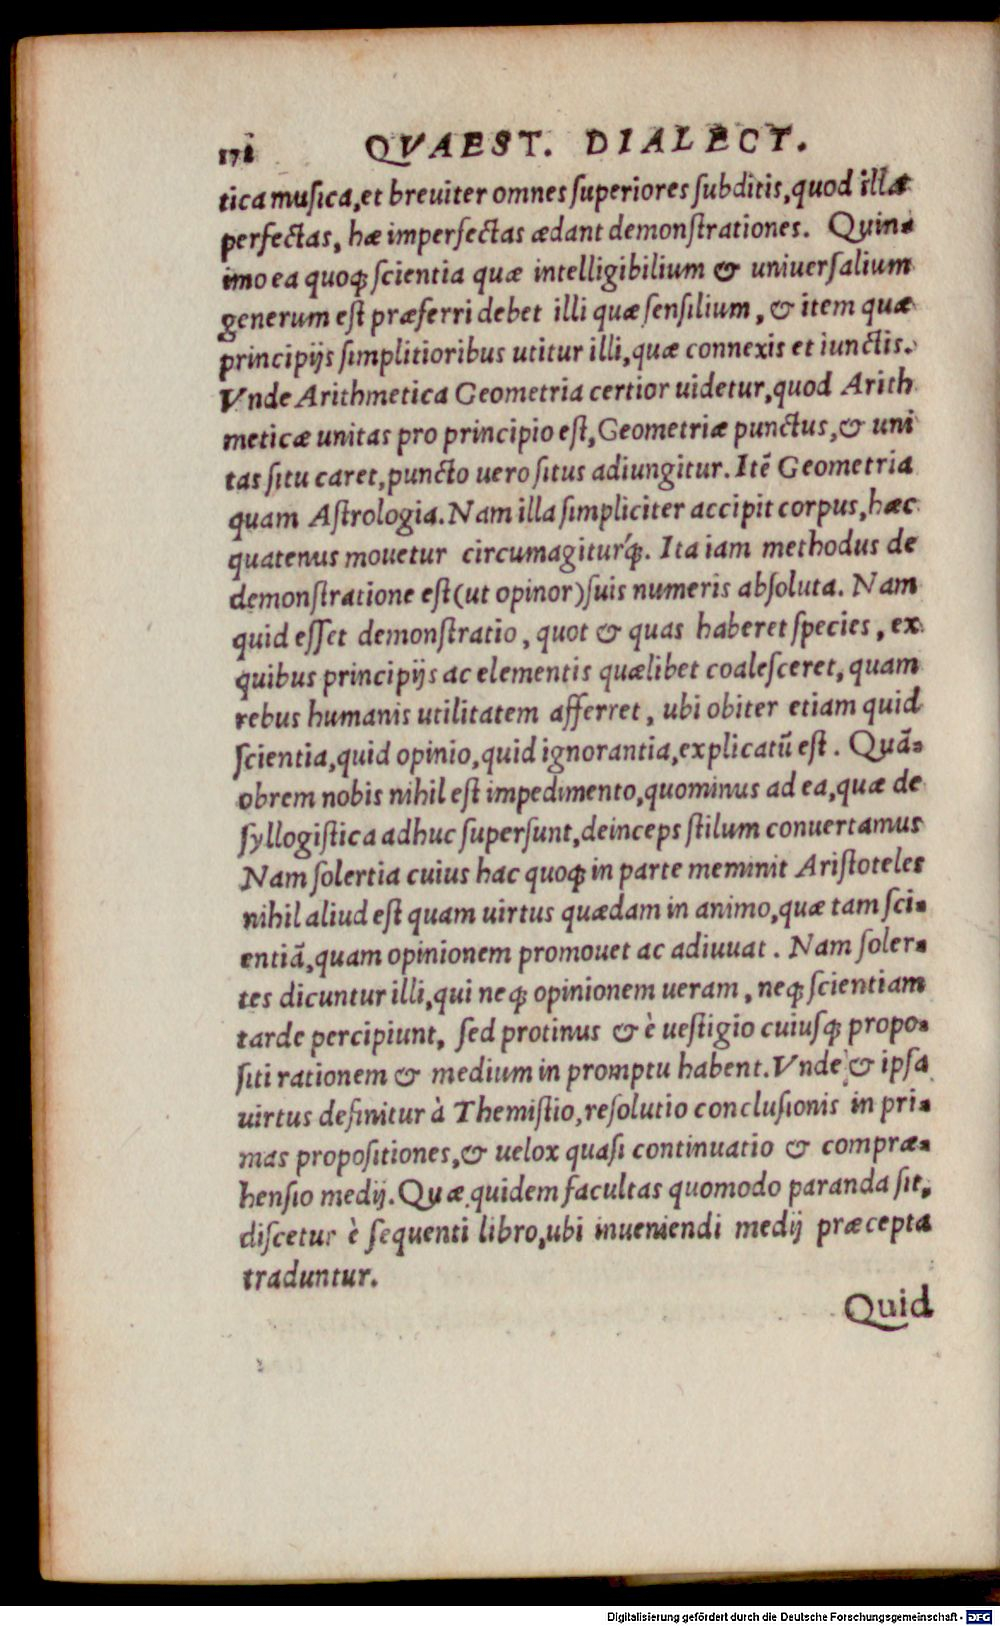 178 QVAEST. DIALECT.
tica musica, et breuiter omnes superiores subditis, quod illæ
perfectas, hæ imperfectas ædant demonstrationes. Quin-
imo ea quoq; scientia quæ intelligibilium & uniuersalium
generum est præferri debet illi quæ sensilium, & item quæ
principijs simplitioribus utitur illi, quæ connexis et iunctis.
Vnde Arithmetica Geometria certior uidetur, quod Arith
meticæ unitas pro principio est, Geometriæ punctus, & uni
tas situ caret, puncto uero situs adiungitur. Itē Geometria
quam Astrologia. Nam illa simpliciter accipit corpus, hæc
quatenus mouetur circumagiturq́;. Ita iam methodus de
demonstratione est (ut opinor) suis numeris absoluta. Nam
quid esset demonstratio, quot & quas haberet species, ex
quibus principijs ac elementis quælibet coalesceret, quam
rebus humanis utilitatem afferret, ubi obiter etiam quid
scientia, quid opinio, quid ignorantia, explicatū est. Quā-
obrem nobis nihil est impedimento, quominus ad ea, quæ de
syllogistica adhuc supersunt, deinceps stilum conuertamus
Nam solertia cuius hac quoq; in parte meminit Aristoteles
nihil aliud est quam uirtus quædam in animo, quæ tam sci-
entiā, quam opinionem promouet ac adiuuat. Nam soler-
tes dicuntur illi, qui neq; opinionem ueram, neq; scientiam
tarde percipiunt, sed protinus & è uestigio cuiusq; propo-
siti rationem & medium in promptu habent. Vnde & ipsa
uirtus definitur à Themistio, resolutio conclusionis in pri-
mas propositiones, & uelox quasi continuatio & compræ-
hensio medij. Quæ quidem facultas quomodo paranda sit,
discetur è sequenti libro, ubi inueniendi medij præcepta
traduntur.
Quid
Digitalisierung gefördert durch die Deutsche Forschungsgemeinschaft - DFG